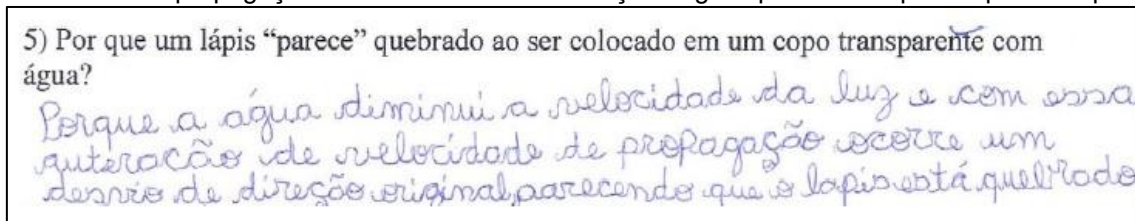 5) Por que um lápis “parece” quebrado ao ser colocado em um copo transparente com
água?
Porque a água diminui a velocidade da luz e com essa
auteracão de velocidade de propagação ocorre um
desvio de direção original, parecendo que o lapis está quebrado